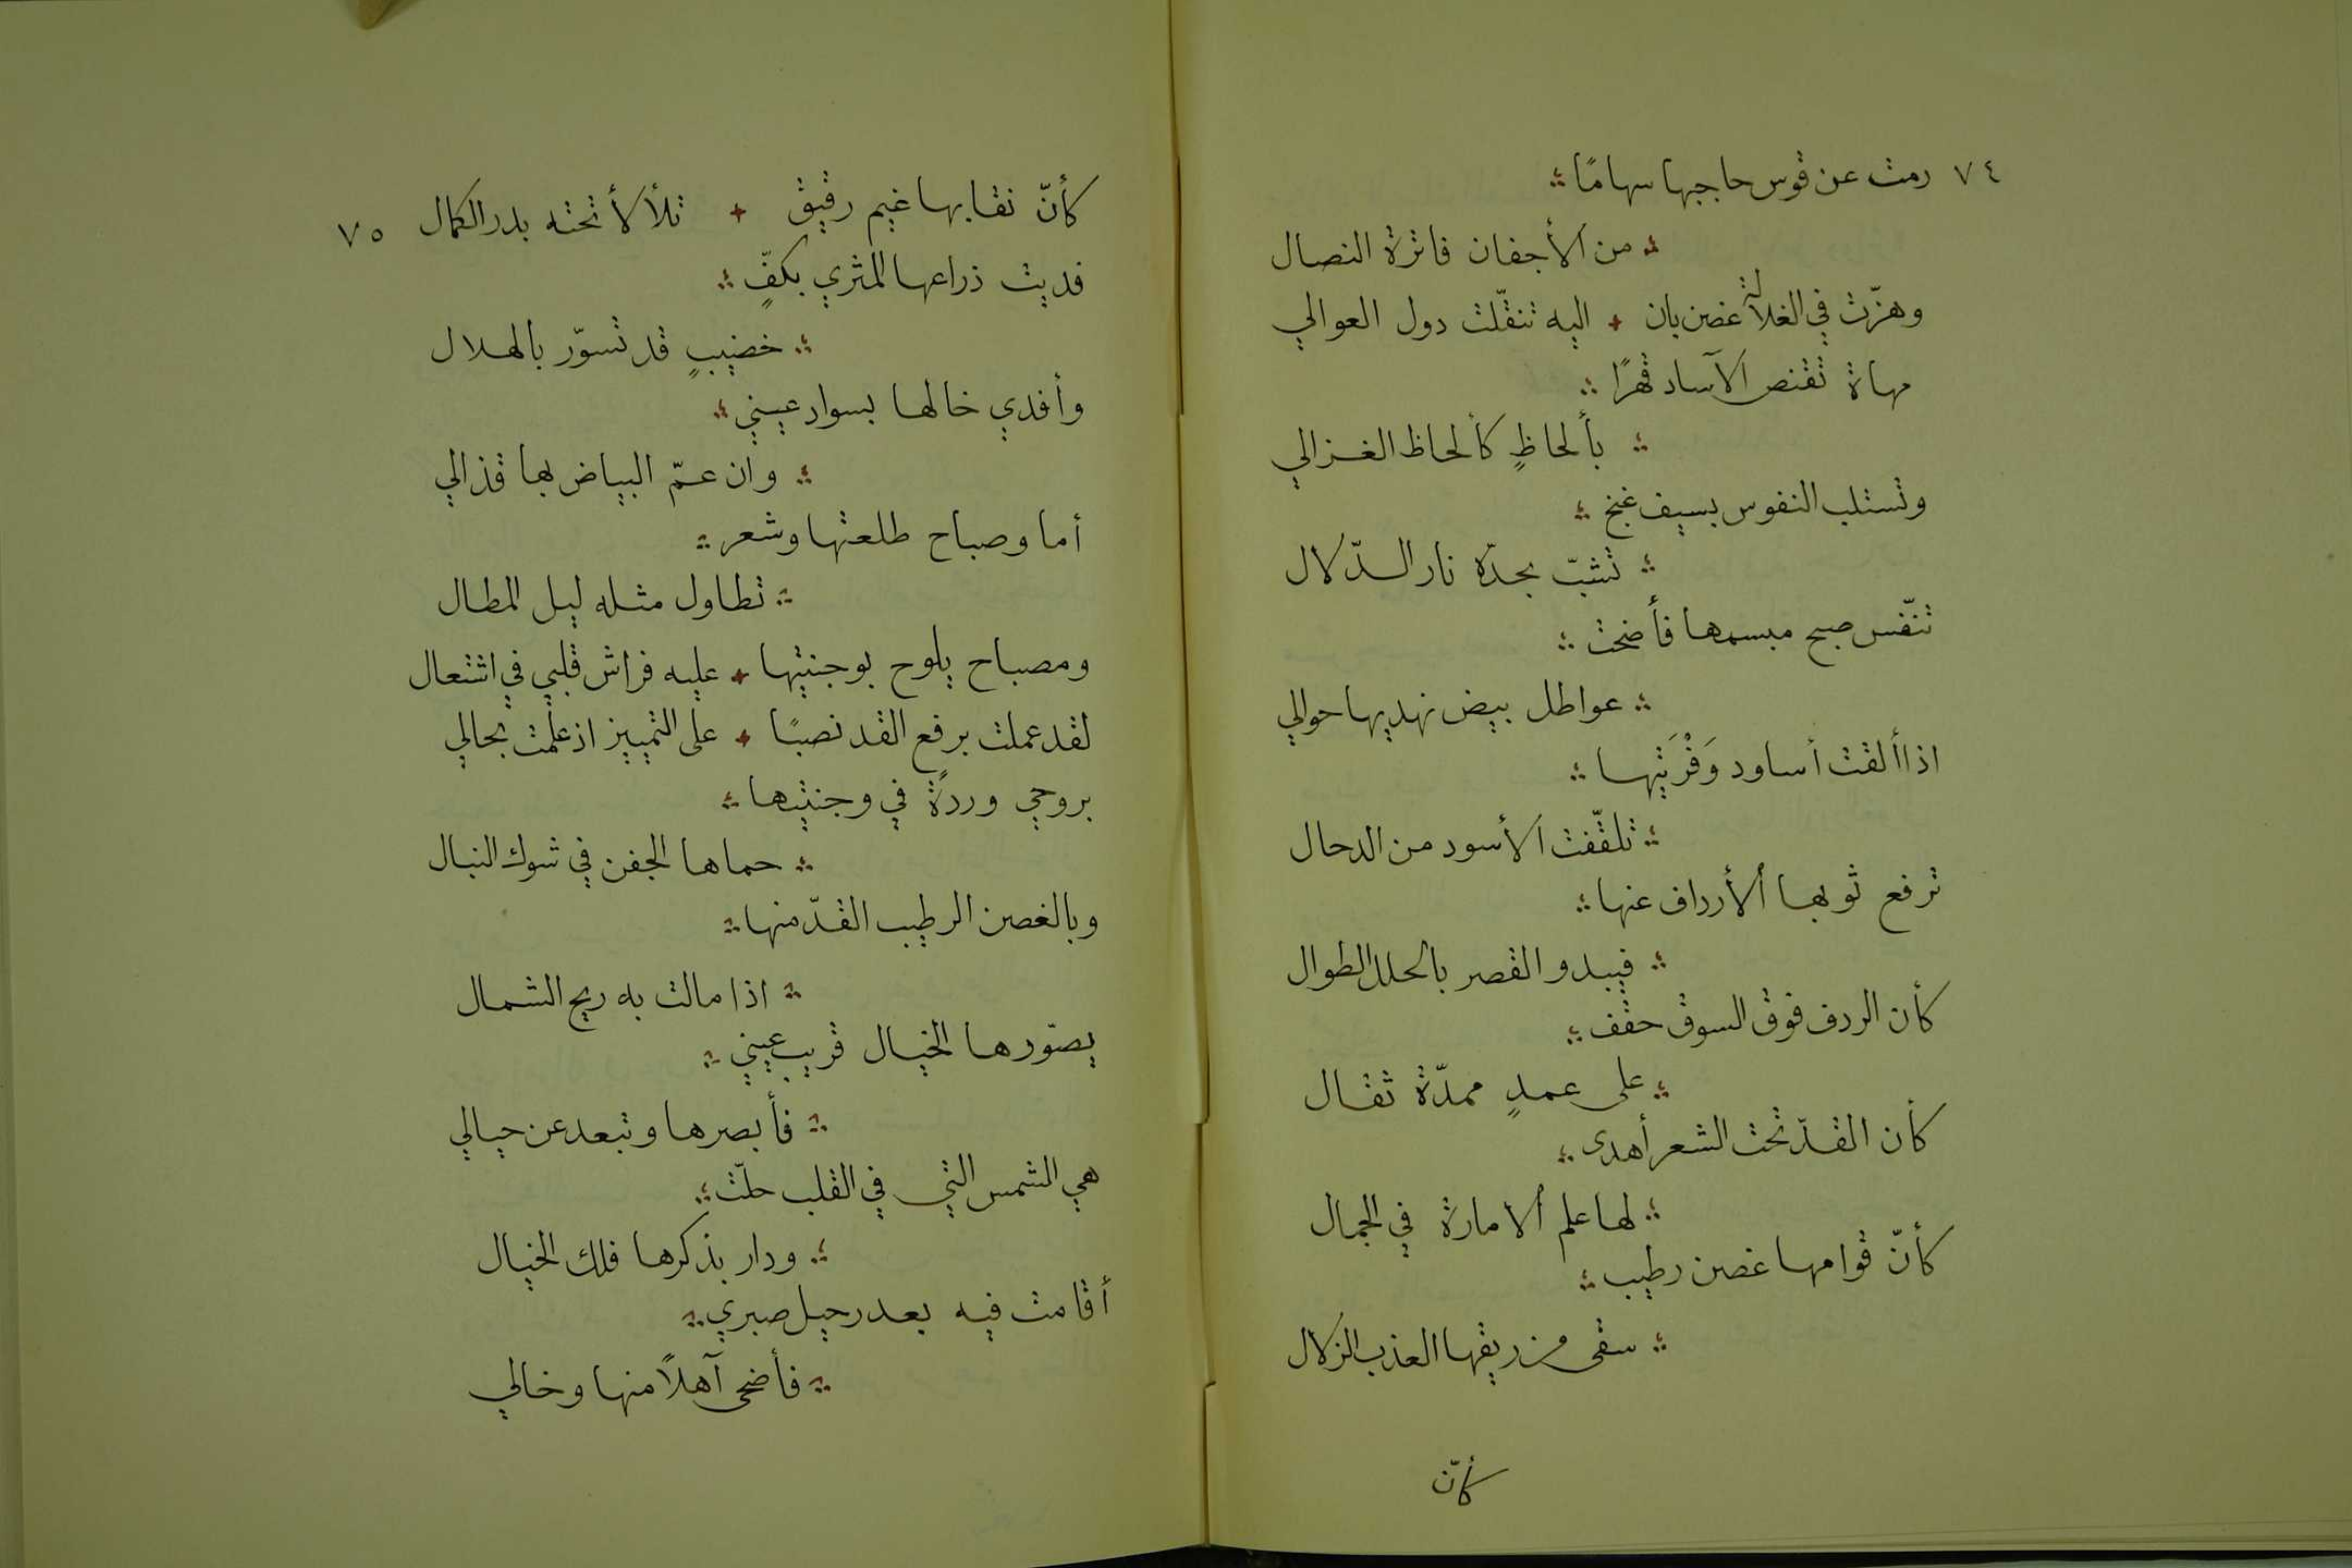 ٧٤ رمت عن قوس حاجبها سهامًا
من الأجفان فاترة النصال
وهزّت في الغلالة غصن بان + اليه تنقّلت دول العوالي
مهاة تقنص الآساد قهرًا
بألحاظٍ كألحاظ الغزالي
وتستلب النفوس بسيف غنج
تشبّ بحدّه نار الدّلال
تنفّس صبح مبسمها فأضحت
عواطل بيض نهديها حوالي
اذا ألقت أساود وَفْرَتيها
تلقّفت الأسود من الدحال
ترفع ثوبها ألأرداف عنها
فيبدو القصر بالحلل الطوال
كأن الردف فوق السوق حقف
على عمدٍ ممدّة ثقال
كأن القدّ تحت الشعر أهدى
لها علم ألامارة في الجمال
كأنّ قوامها غصن رطيب
سقى من ريقها العذب الزلال
كأنّ
كأنّ نقابها غيم رقيق + تلألأ تحته بدر الكمال ٧٥
فديت ذراعها المثري بكفٍّ
خضيبٍ قد تسوّر بالهلال
وأفدي خالها بسواد عيني
وان عمّ البياض بها قذالي
أما وصباح طلعتها وشعر
تطاول مثله ليل المطال
ومصباح يلوح بوجنتيها + عليه فراش قلبي في اشتعال
لقد عملت برفع القد نصبًا + على التمييز اذ علمت بحالي
بروحي وردةً في وجنتيها
حماها الجفن في شوك النبال
وبالغصن الرطيب القدّ منها
اذا مالت به ريح الشمال
يصوّرها الخيال قريب عيني
فأبصرها وتبعد عن حيالي
هي الشمس التي في القلب حلّت
ودار بذكرها فلك الخيال
أقامت فيه بعد رحيل صبري
فأضحى آهلاً منها وخالي